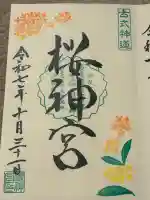 古式神道
桜神宮
令和七年十月三十一日